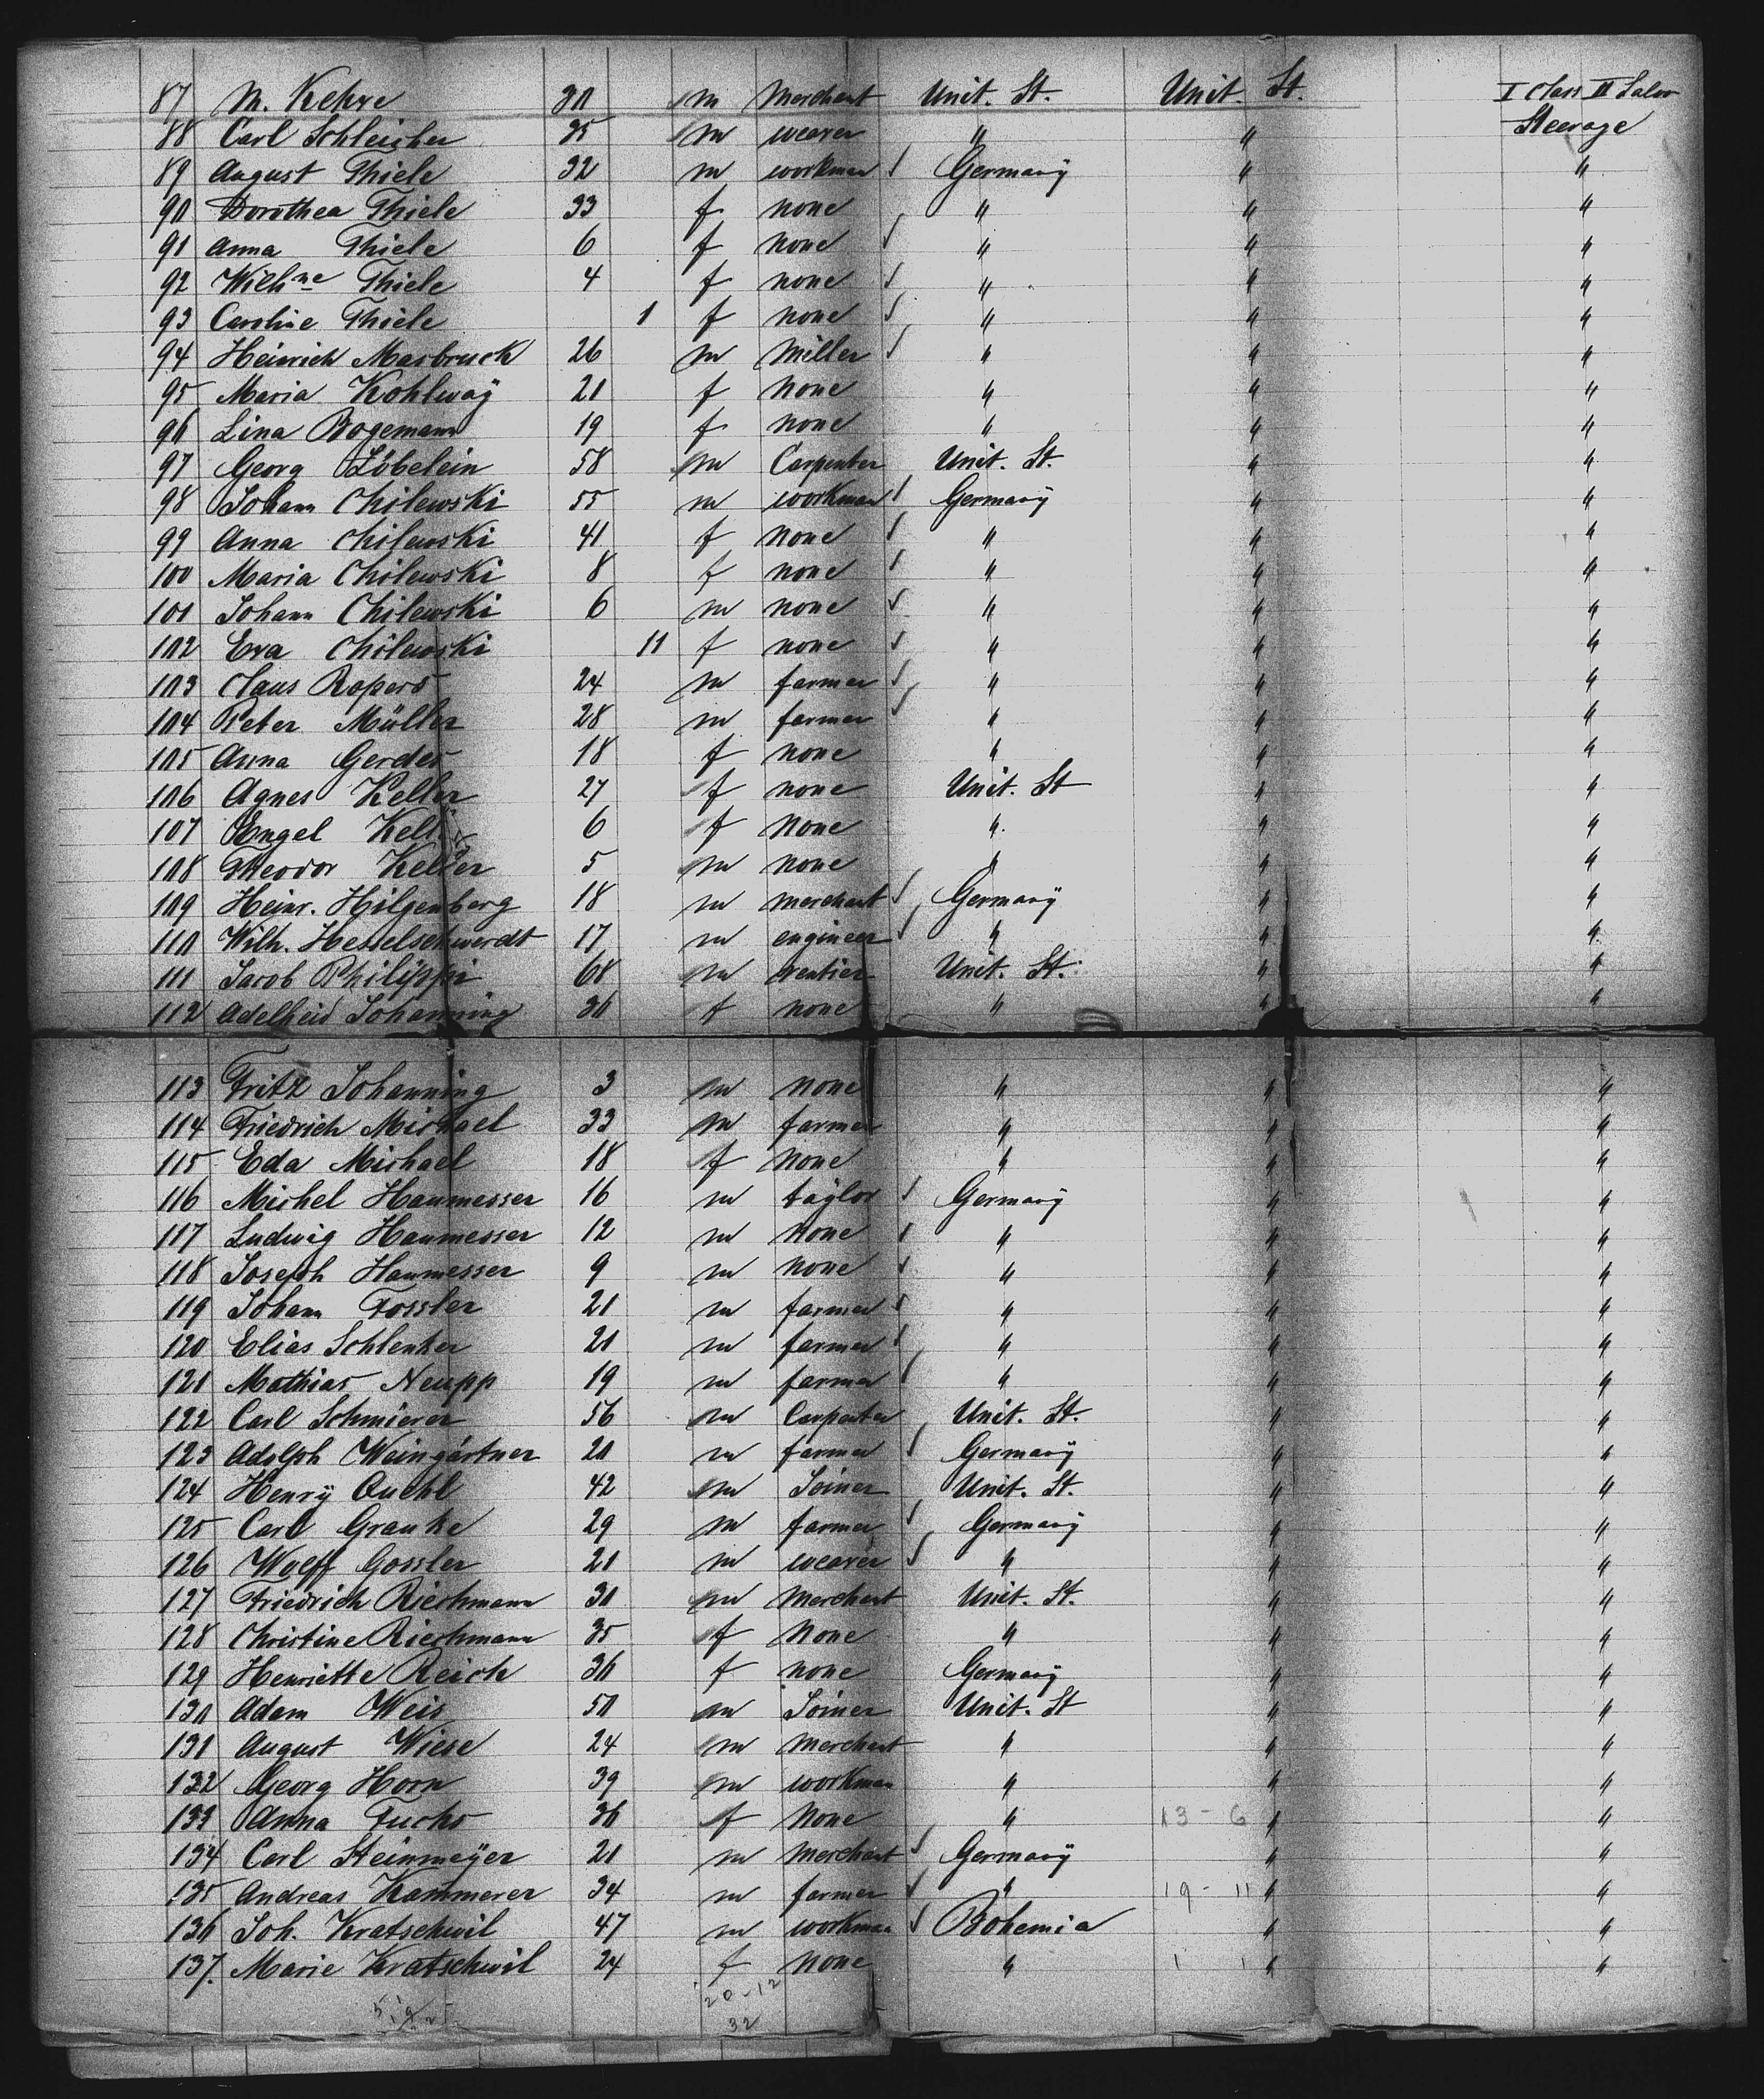 87 M. Kehre 30 m Merchant Unit. St. Unit. St. I Class II Salon
88 Carl Schleicher 35 m weaver " " Steerage
89 August Thiele 32 m workman Germany " "
90 Dorothea Thiele 33 f none " " "
91 Anna Thiele 6 f none " " "
92 Wilhne Thiele 4 f none " " "
93 Caroline Thiele 1 f none " " "
94 Heinrich Masbruck 26 m Miller " " "
95 Maria Kohlway 21 f none " " "
96 Lina Bogemann 19 f none " " "
97 Georg Löbelein 58 m Carpenter Unit. St. " "
98 Johann Chilewski 55 m workman Germany " "
99 Anna Chilewski 41 f none " " "
100 Maria Chilewski 8 f none " " "
101 Johann Chilewski 6 m none " " "
102 Eva Chilewski 11 f none " " "
103 Claus Ropers 24 m farmer " " "
104 Peter Müller 28 m farmer " " "
105 Anna Gerdes 18 f none " " "
106 Agnes Keller 27 f none Unit. St " "
107 Engel Keller 6 f none " " "
108 Theodor Keller 5 m none " " "
109 Heinr. Hilgenberg 18 m merchant Germany " "
110 Wilh. Hesselschwerdt 17 m engineer " " "
111 Jacob Philippi 68 m rentier Unit. St. " "
112 Adelheid Johanning 36 f none " " "
113 Fritz Johanning 3 m none " " "
114 Friedrich Michael 33 m farmer " " "
115 Eda Michael 18 f none " " "
116 Michel Haumesser 16 m taylor Germany " "
117 Ludwig Haumesser 12 m none " " "
118 Joseph Haumesser 9 m none " " "
119 Johann Fossler 21 m farmer " " "
120 Elias Schlenker 21 m farmer " " "
121 Mathias Neupp 19 m farmer " " "
122 Carl Schmierer 56 m Carpenter Unit. St. " "
123 Adolph Weingärtner 20 m farmer Germany " "
124 Henry Quehl 42 m Joiner Unit. St. " "
125 Carl Granke 29 m farmer Germany " "
126 Wolff Gossler 21 m weaver " " "
127 Friedrich Riechmann 30 m Merchant Unit. St. " "
128 Christine Riechmann 35 f None " " "
129 Henriette Reich 36 f none Germany " "
130 Adam Weis 50 m Joiner Unit. St " "
131 August Wiese 24 m Merchant " " "
132 Georg Horn 39 m workman " " "
133 Anna Fuchs 36 f None " 13 - 6 " "
134 Carl Steinmeyer 21 m Merchant Germany " "
135 Andreas Kammerer 34 m farmer " 19 - 11 " "
136 Joh. Kratschwil 47 m workman Bohemia " "
137. Marie Kratschwil 24 f none " 1 1 " "
20-12
32